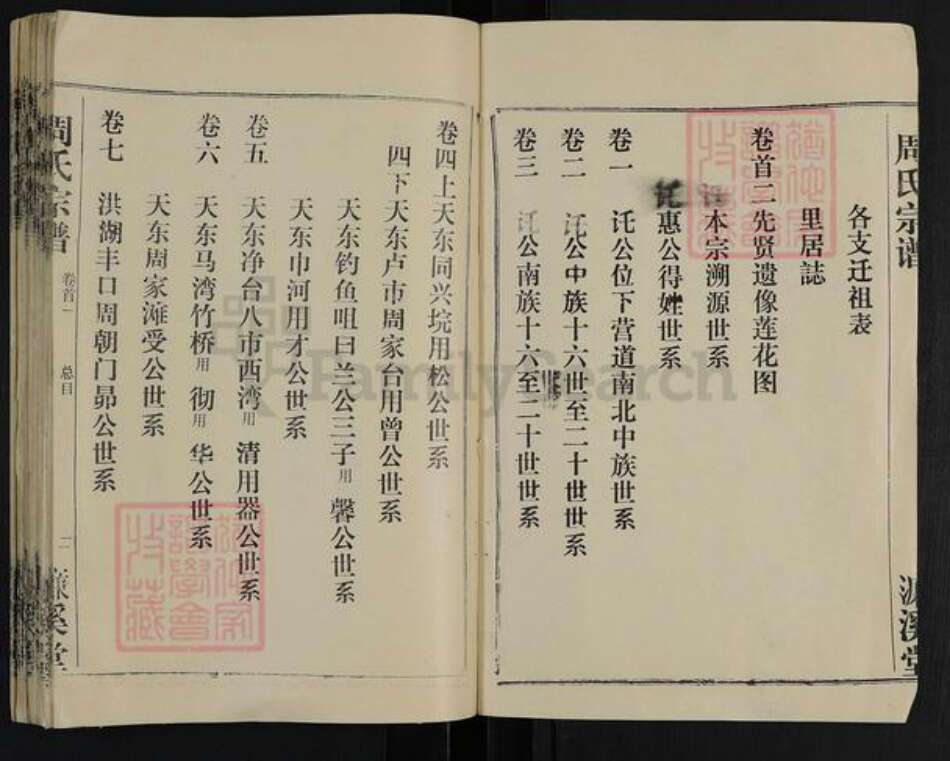 周氏宗谱
濂溪堂
各支迁祖表
里居誌
卷首二先贤遗像莲花图
本宗溯源世系
惠公得姓世系
卷一 讬公位下营道南北中族世系
卷二 讬公中族十六世至二十世世系
卷三 讬公南族十六至二十世世系
卷四上天东同兴垸用松公世系
四下天东卢市周家台用曾公世系
天东钓鱼咀曰兰公三子用馨公世系
天东巾河用才公世系
卷五 天东净台八市西湾用清用器公世系
卷六 天东马湾竹桥用彻用华公世系
天东周家滩受公世系
卷七 洪湖丰口周朝门昴公世系
周氏宗普
卷首一
总目
二
濂溪堂
FamilySearch